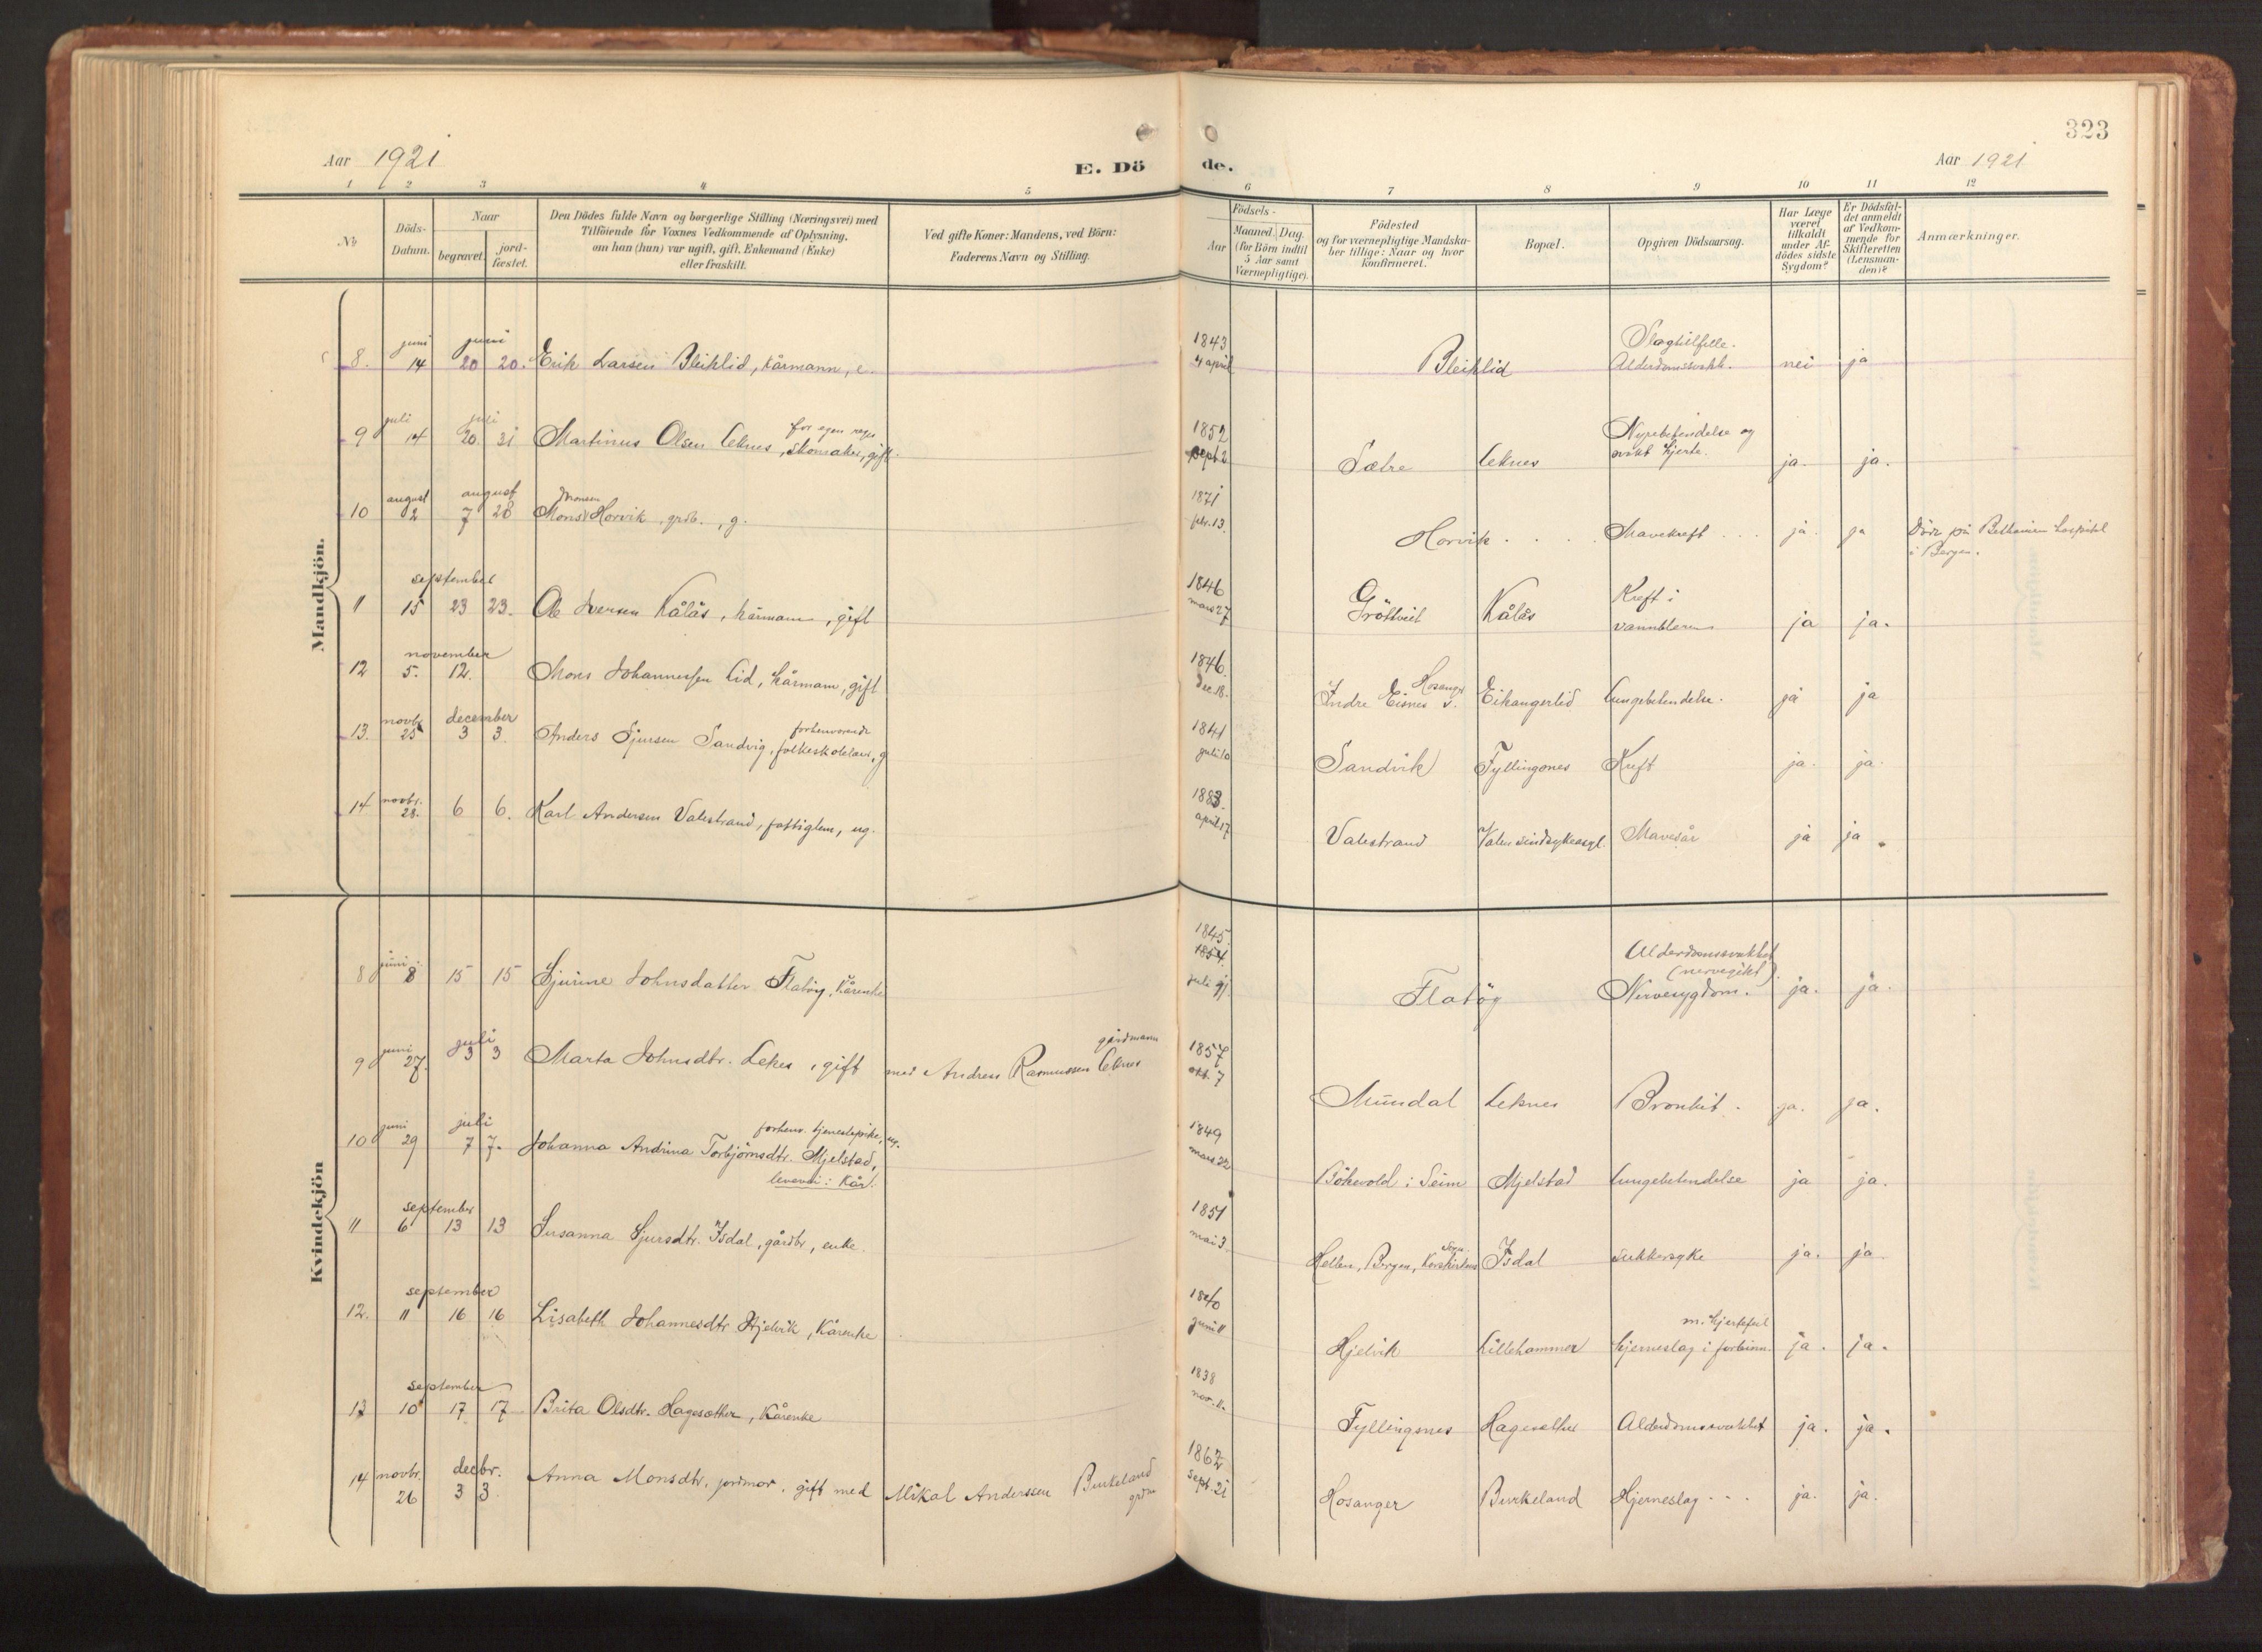 323
Aar 1921
E. Dö
de.
Aar 1921
1 2 3 4 5 6 7 8 9 10 11 12
No
Döds-
Datum.
Naar
begravet.
jord-
fæstet.
Den Dödes fulde Navn og borgerlige Stilling (Næringsvei) med
Tilföiende for Voxnes Vedkommende af Oplysning,
om han (hun) var ugift, gift, Enkemand (Enke)
eller fraskilt.
Ved gifte Koner: Mandens, ved Börn:
Faderens Navn og Stilling.
Födsels-
Aar
Maaned. Dag.
(for Börn indtil
5 Aar samt
Værnepligtige).
Födested
og for værnepligtige Mandska-
ber tillige: Naar og hvor
konfirmeret.
Bopæl.
Opgiven Dödsaarsag.
Har Læge
været
tilkaldt
under Af-
dödes sidste
Sygdom?
Er Dödsfal-
det anmeldt
af Vedkom-
mende for
Skifteretten
(Lensman-
den)?
Anmærkninger.
Mandkjön.
juni juni 1843 Slagtilfelle.
8. 14 20 20. Erik Larsen Bleiklid, kårmann, e. 4 april Bleiklid Alderdomssvakh. nei ja
juli juli for egen regn 1852 Nyrebetendelse og
9 14 20. 31 Martinus Olsen Leknes, skomaker, gift. sept. 2 Sætre Leknes svakt hjerte. ja. ja.
august august Monsen 1871
10 2 7 28 Mons Horvik, grdb., g. febr. 13 Horvik Mavekreft ja. ja Döde på Bethanien hospital
i Bergen.
september 1846 Kreft i
11 15 23 23. Ole Iversen Kålås, kårmann, gift mars 27 Gröttveit Kålås vannblæren ja ja.
november 1846. Hosanger
12 5. 12. Mons Johannessen Lid, kårmann, gift dec. 18. Indre Eisnes Eikangerlid Lungebetendelse. ja ja
novbr. december forhenværende 1841
13. 25 3 3. Anders Sjursen Sandvig, folkeskolelærer, g juli 10 Sandvik Fyllingsnes Kreft ja. ja.
novbr. 1883.
14 28. 6 6. Karl Andersen Valestrand, fattiglem, ug. april 17 Valestrand Valen sindsykeasyl. Mavesår ja ja.
Kvindekjön
1845. 1854. Alderdomssvakhet
juni (nervegikt).
8 8 15 15 Sjurine Johnsdatter Flatöy, Kårenke juli Flatöy Nervesygdom. ja. ja.
juni juli gårdmann 1857
9 27. 3 3 Marta Johnsdtr. Leknes, gift med Andreas Rasmussen Leknes okt. 7 Mundal Leknes Bronkit. ja. ja.
juni juli forhenv. tjenestepike, ug. 1849
10 29 7 7. Johanna Andrina Torbjörnsdtr. Mjelstad, mars 22 i Seim Mjelstad Lungebetendelse ja ja.
levende i kår.
september 1851
11 6 13 13 Susanna Sjursdtr. Isdal, gårdbr, enke. mai 3. Hellen, Bergen, Korskirkens Sogn. Isdal sukkersyke ja. ja
september 1840 m. hjertefeil
12. 11 16 16 Lisabeth Johannesdtr. Hjelvik, Kårenke juni 11 Hjelvik Lillehammer hjerneslag i forbinn. ja. ja.
september 1838
13 10 17 17 Brita Olsdtr. Hagesæther, Kårenke nov. 11. Fyllingsnes Hagesæther Alderdomssvakhet ja. ja.
novbr. decbr. 1862
14 26 3 3. Anna Monsdtr, jordmor, gift med Mikal Anderssen Burkeland sept. 21 Hosanger Burkeland Hjerneslag ja. ja.
grdm